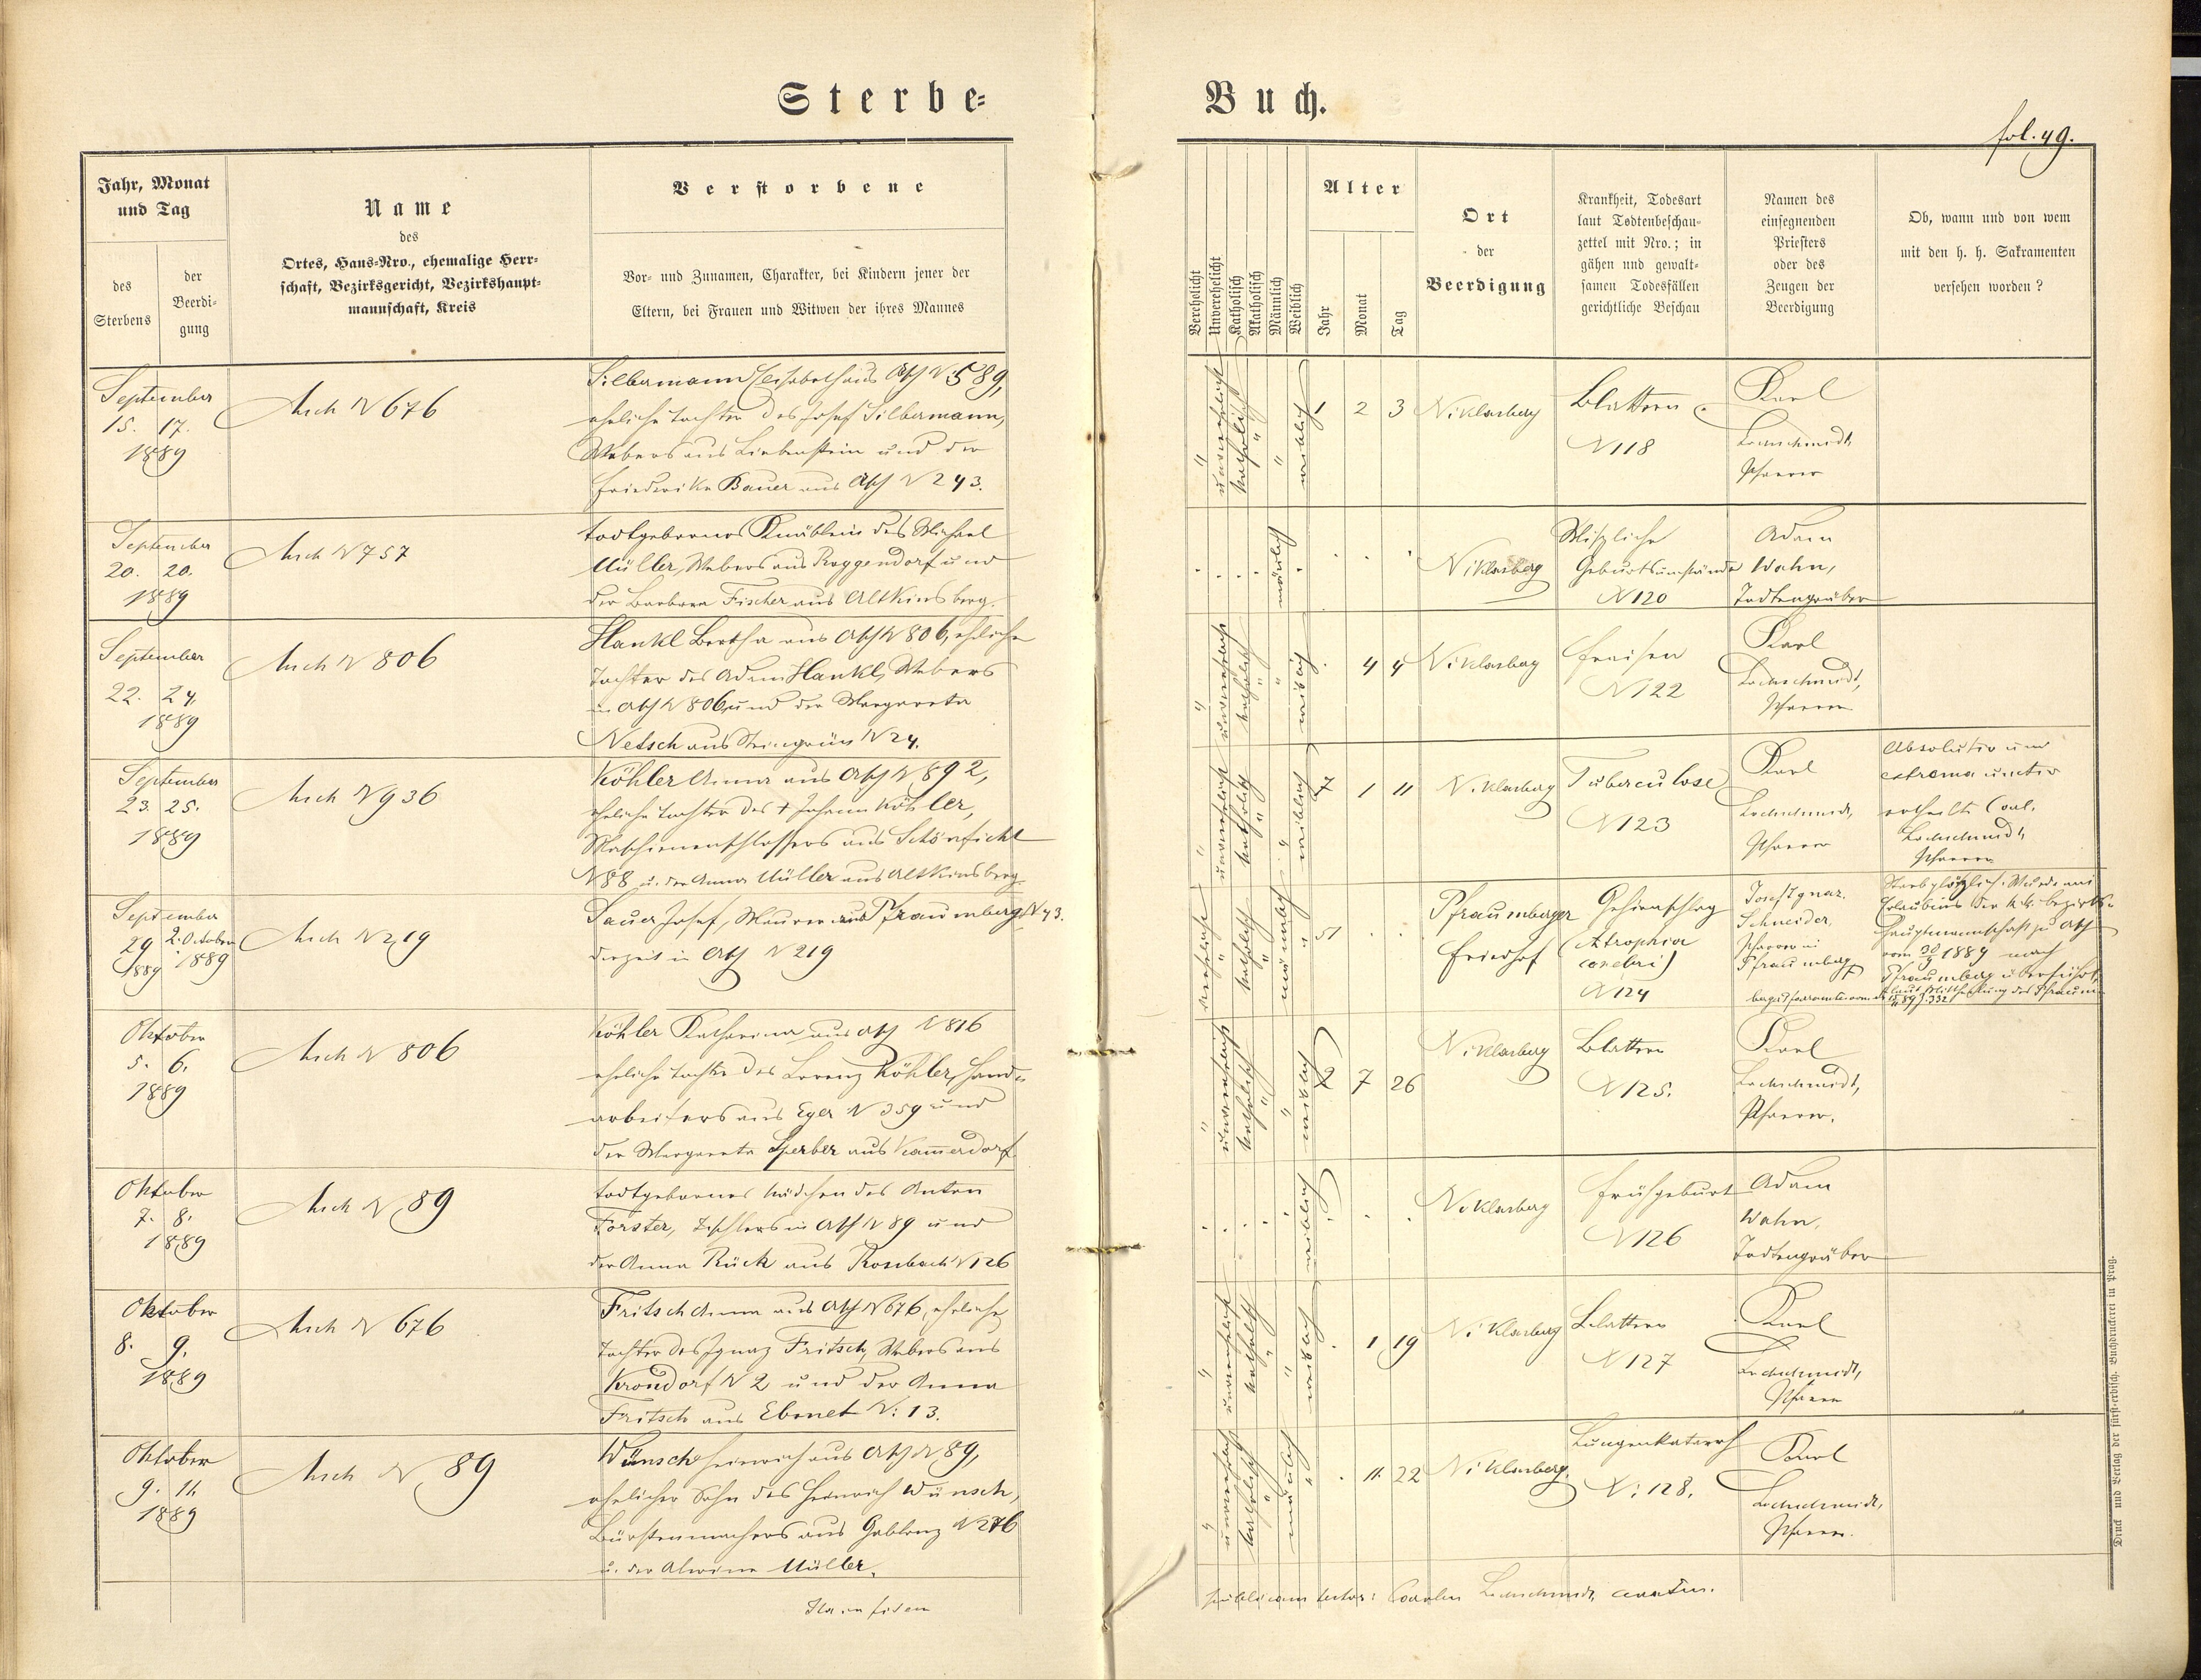 Sterbe-
Buch.
fol. 49.
Jahr, Monat
und Tag
des
Sterbens
der
Beerdi-
gung
Name
des
Ortes, Haus-Nro., ehemalige Herr-
schaft, Bezirksgericht, Bezirkshaupt-
mannschaft, Kreis
Verstorbene
Vor- und Zunamen, Charakter, bei Kindern jener der
Eltern, bei Frauen und Witwen der ihres Mannes
Verehelicht
Unverehelicht
Katholisch
Akatholisch
Männlich
Weiblich
Alter
Jahr
Monat
Tag
Ort
der
Beerdigung
Krankheit, Todesart
laut Todtenbeschau-
zettel mit Nro.; in
gähen und gewalt-
samen Todesfällen
gerichtliche Beschau
Namen des
einsegnenden
Priesters
oder des
Zeugen der
Beerdigung
Ob, wann und von wem
mit den h. h. Sakramenten
versehen worden?
September
15. 17.
1889
Asch N 676
Silbermann Elisabeth aus Asch N 589,
eheliche Tochter des Josef Silbermann,
Webers aus Liebenstein und der
Friederike Bauer aus Asch N 243.
unverehelicht
katholisch
weiblich
1 2 3
Niklasberg
Blattern
N 118
Karl
Lochschmidt,
Pfarrer
September
20. 20.
1889
Asch N 757
todtgebornes Knäblein des Michael
Müller, Webers aus Roggendorf und
der Barbara Fischer aus Altkinsberg.
männlich
Niklasberg
Mißliche
Geburtsumstände
N 120
Adam
Wahn,
Todtengräber
September
22. 24.
1889
Asch N 806
Hankl Bertha aus Asch N 806, eheliche
Tochter des Adam Hankl, Webers
in Asch N 806 und der Margareta
Netsch aus Steingrün N 24.
unverehelicht
katholisch
weiblich
4 4
Niklasberg
Fraisen
N 122
Karl
Lochschmidt,
Pfarrer
September
23. 25.
1889
Asch N 936
Köhler Anna aus Asch N 892,
eheliche Tochter des + Johann Köhler,
Maschinenschlossers aus Schönficht
N 88 u. der Anna Müller aus Altkinsberg
unverehelicht
katholisch
weiblich
7 1 11
Niklasberg
Tuberculose
N 123
Karl
Lochschmidt,
Pfarrer
Absolutio und
extrema unctio
ertheilt Carl
Lochschmidt,
Pfarrer
September
29 2. October
1889 1889
Asch N 219
Sauer Josef, Maurer aus Pfraumberg N 43.
derzeit in Asch N 219
verehelicht
katholisch
männlich
51
Pfraumberger
Friedhof
Gehirnschlag
(Atrophia
cerebri)
N 124
Josef Ignaz
Schneider,
Pfarrer in
Pfraumberg
Starb plötzlich. Wurde mit
Erlaubnis der k.k. Bezirks-
hauptmannschaft zu Asch
vom 30/9 1889 nach
Pfraumberg überführt,
laut Mittheilung des Pfraum-
berger Pfarramtes vom
Oktober
5. 6.
1889
Asch N 806
Köhler Katharina aus Asch N 816
eheliche Tochter des Lorenz Köhler, Hand-
arbeiters aus Eger N 359 und
der Margareta Sperber aus Kammerdorf
unverehelicht
katholisch
weiblich
2 7 26
Niklasberg
Blattern
N 125.
Karl
Lochschmidt,
Pfarrer.
Oktober
7. 8.
1889
Asch N 89
todtgebornes Mädchen des Anton
Forster, Tischlers in Asch N 89 und
der Anna Rück aus Rossbach N 126
weiblich
Niklasberg
Frühgeburt
N 126
Adam
Wahn,
Todtengräber
Oktober
8. 9.
1889
Asch N 676
Fritsch Anna aus Asch N 676, eheliche
Tochter des Ignaz Fritsch, Webers aus
Krondorf N 2 und der Anna
Fritsch aus Ebmet N: 13.
unverehelicht
katholisch
weiblich
1 19
Niklasberg
Blattern
N 127
Karl
Lochschmidt,
Pfarrer
Oktober
9. 11.
1889
Asch N 89
Wünsch Heinrich aus Asch N 89,
ehelicher Sohn des Heinrich Wünsch,
Bürstenmachers aus Gablonz N 276
u. der Alwine Müller.
unverehelicht
katholisch
männlich
11 22
Niklasberg
Lungenkatarrh
N: 128.
Karl
Lochschmidt,
Pfarrer.
Lochschmidt,
Druck und Verlag der fürst-erzbisch. Buchdruckerei in Prag.